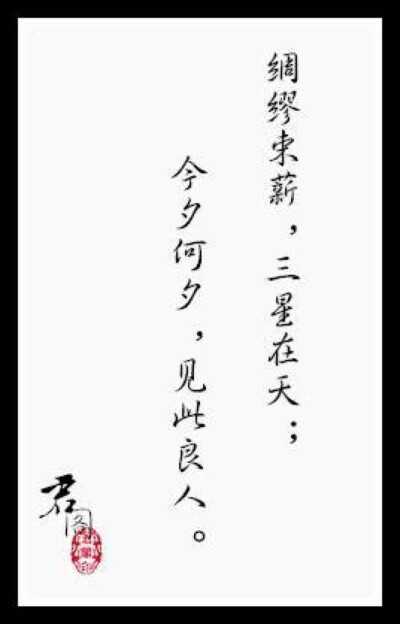 绸缪束薪，三星在天；
今夕何夕，见此良人。
君图